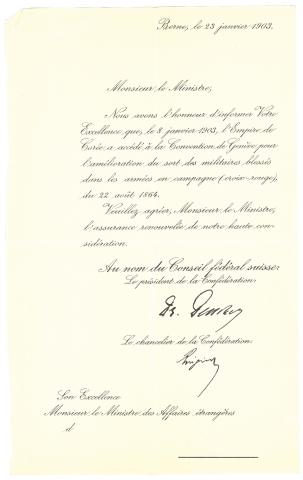 Berne, le 23 janvier 1903.
Monsieur le Ministre,
Nous avons l'honneur d'informer Votre
Excellence que, le 8 janvier 1903, l'Empire de
Corée a accédé à la Convention de Genève pour
l'amélioration du sort des militaires blessés
dans les armées en campagne (croix-rouge),
du 22 août 1864.
Veuillez agréer, Monsieur le Ministre,
l'assurance renouvelée de notre haute con-
sidération.
Au nom du Conseil fédéral suisse:
Le président de la Confédération:
Le chancelier de la Confédération:
Son Excellence
Monsieur le Ministre des Affaires étrangères
d